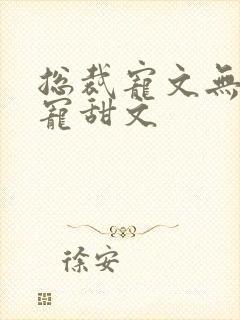 总裁寵文無
寵甜文
徐安